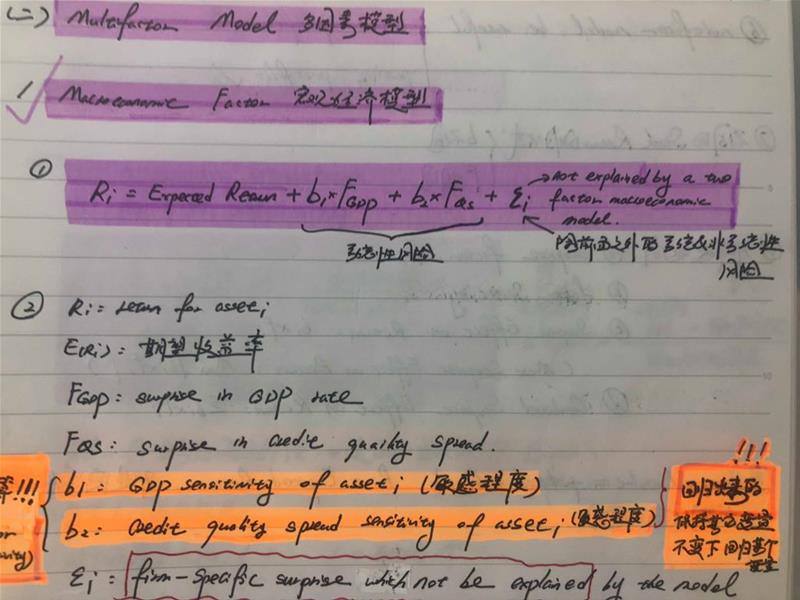 (二) Multifactor Model 多因素模型
1 Macroeconomic Factor 宏观经济模型
① Ri = Expected Return + b1×FGDP + b2×FQS + εi → not explained by a two
factor macroeconomic
model.
系统性风险
除前面之外的系统&非系统性
风险
② Ri = return for asset i
E(Ri): 期望收益率
FGDP: surprise in GDP rate
FQS: surprise in credit quality spread.
!!!
b1: GDP sensitivity of asset i (敏感程度)
b2: credit quality spread sensitivity of asset i (敏感程度)
回归出来的
保持其他变量
不变下回归某个
变量
εi: firm-specific surprise which not be explained by the model